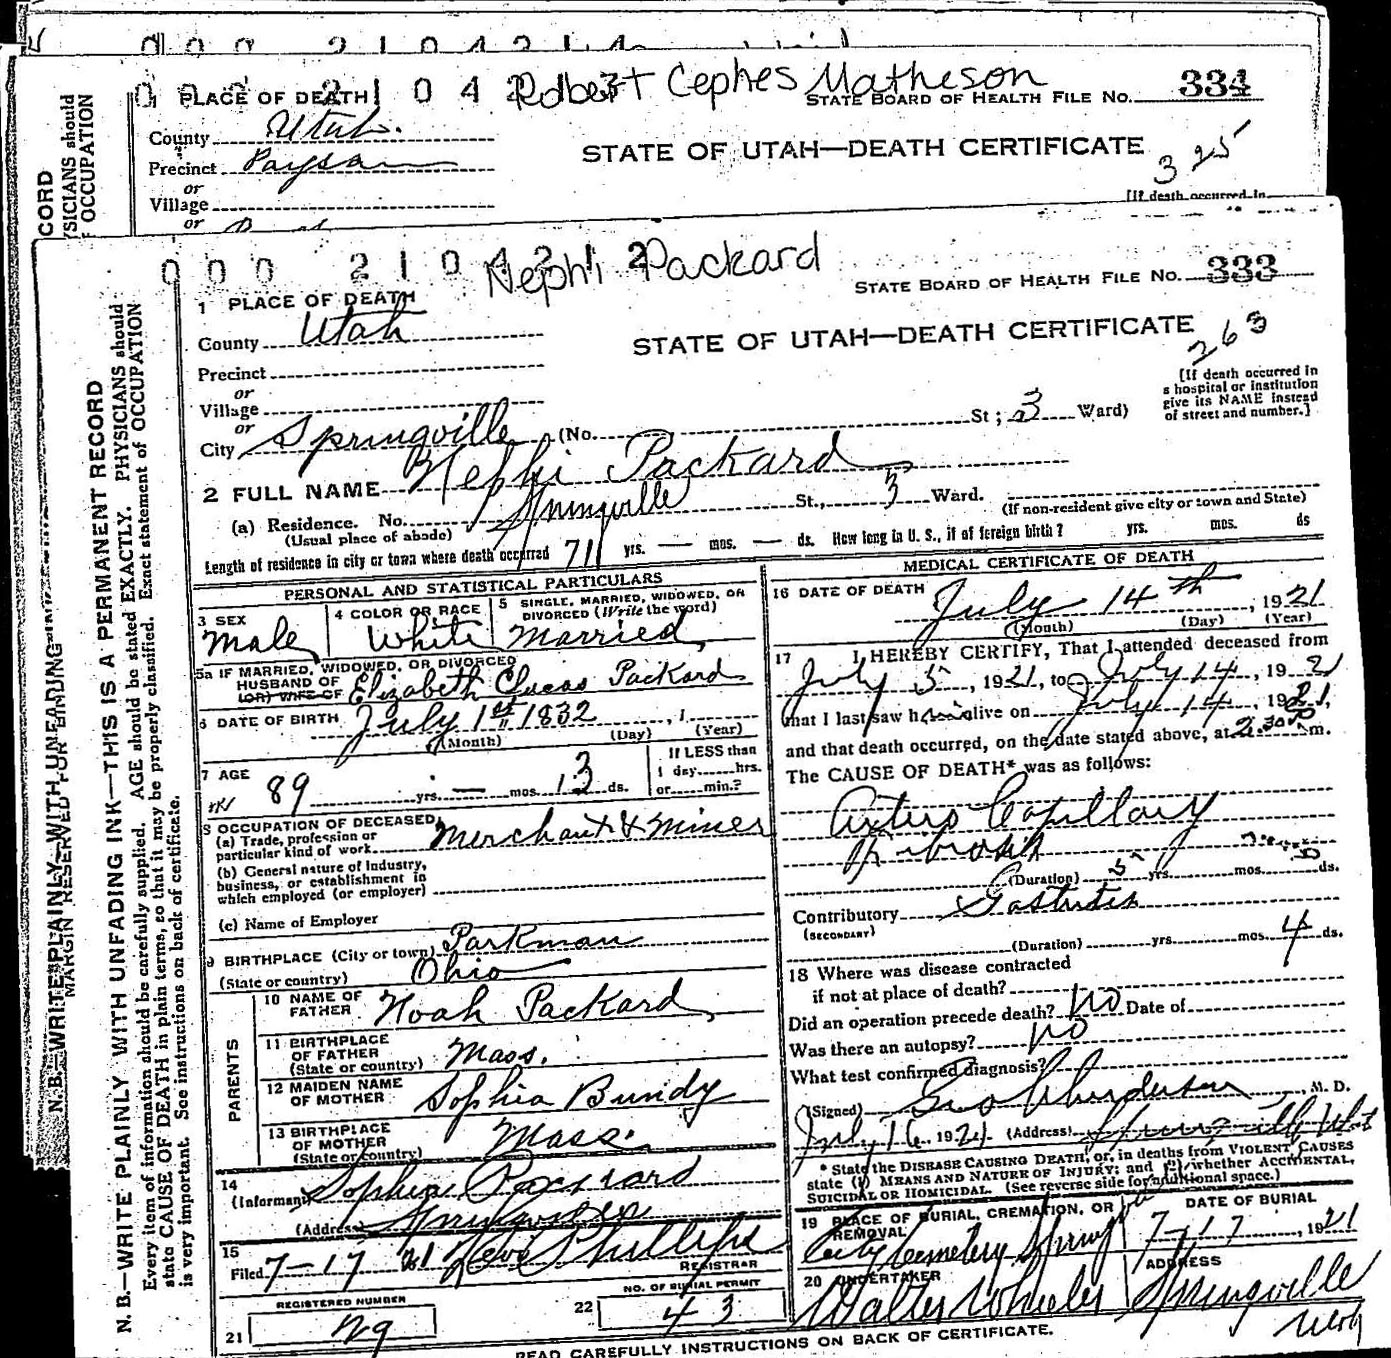 0 0 0 2 1 0 4 2
Robert Cephes Matheson
1 PLACE OF DEATH
STATE BOARD OF HEALTH FILE No. 334
County Utah.
STATE OF UTAH—DEATH CERTIFICATE
325
Precinct Payson
or
Village
or
[If death occurred in
0 0 0 2 1 0 4 2 1 2
Nephi Packard
STATE BOARD OF HEALTH FILE No. 333
1 PLACE OF DEATH
County Utah
STATE OF UTAH—DEATH CERTIFICATE
263
Precinct
or
Village
or
City Springville (No. St; 3 Ward)
[If death occurred in
a hospital or institution
give its NAME instead
of street and number.]
2 FULL NAME Nephi Packard
(a) Residence. No. Springville St., 3 Ward.
(Usual place of abode)
(If non-resident give city or town and State)
Length of residence in city or town where death occurred 71 yrs. — mos. — ds. How long in U. S., if of foreign birth? yrs. mos. ds
PERSONAL AND STATISTICAL PARTICULARS
3 SEX
Male
4 COLOR OR RACE
White
5 SINGLE, MARRIED, WIDOWED, OR
DIVORCED (Write the word)
Married
5a IF MARRIED, WIDOWED, OR DIVORCED
HUSBAND OF
(OR) WIFE OF
Elizabeth Clucas Packard
6 DATE OF BIRTH July 1st 1832, 1
(Month) (Day) (Year)
7 AGE
89 yrs. — mos. 13 ds.
If LESS than
1 day hrs.
or min.?
8 OCCUPATION OF DECEASED
(a) Trade, profession or
particular kind of work
Merchant & Miner
(b) General nature of Industry,
business, or establishment in
which employed (or employer)
(c) Name of Employer
9 BIRTHPLACE (City or town) Parkman
(State or country) Ohio
PARENTS
10 NAME OF
FATHER Noah Packard
11 BIRTHPLACE
OF FATHER
(State or country) Mass.
12 MAIDEN NAME
OF MOTHER Sophia Bundy
13 BIRTHPLACE
OF MOTHER
(State or country) Mass.
14
(Informant Sophia Packard
(Address) Springville
15
Filed 7-17 21 Phillips
REGISTRAR
REGISTERED NUMBER
21
NO. OF BURIAL PERMIT
22 43
MEDICAL CERTIFICATE OF DEATH
16 DATE OF DEATH July 14th, 1921
(Month) (Day) (Year)
17 I HEREBY CERTIFY, That I attended deceased from
July 5, 1921, to July 14, 1921
that I last saw him alive on July 14, 1921,
and that death occurred, on the date stated above, at 2.30 P m.
The CAUSE OF DEATH* was as follows:
Arterio Capillary
Fibrosis
(Duration) 5 yrs. mos. ds.
Contributory Gastritis
(SECONDARY)
(Duration) yrs. mos. 4 ds.
18 Where was disease contracted
if not at place of death?
Did an operation precede death? No Date of
Was there an autopsy? No
What test confirmed diagnosis?
(Signed) Geo Anderson, M. D.
July 16, 1921 (Address) Springville Utah
* State the DISEASE CAUSING DEATH, or, in deaths from VIOLENT CAUSES
state (1) MEANS AND NATURE OF INJURY; and (2) whether ACCIDENTAL,
SUICIDAL OR HOMICIDAL. (See reverse side for additional space.)
19 PLACE OF BURIAL, CREMATION, OR
REMOVAL
City Cemetery Springville
DATE OF BURIAL
7-17, 1921
20 UNDERTAKER
Walter Wheeler
ADDRESS
Springville
Utah
READ CAREFULLY INSTRUCTIONS ON BACK OF CERTIFICATE.
MARGIN RESERVED FOR BINDING
N. B.—WRITE PLAINLY WITH UNFADING INK—THIS IS A PERMANENT RECORD
Every item of information should be carefully supplied. AGE should be stated EXACTLY. PHYSICIANS should
state CAUSE OF DEATH in plain terms, so that it may be properly classified. Exact statement of OCCUPATION
is very important. See instructions on back of certificate.